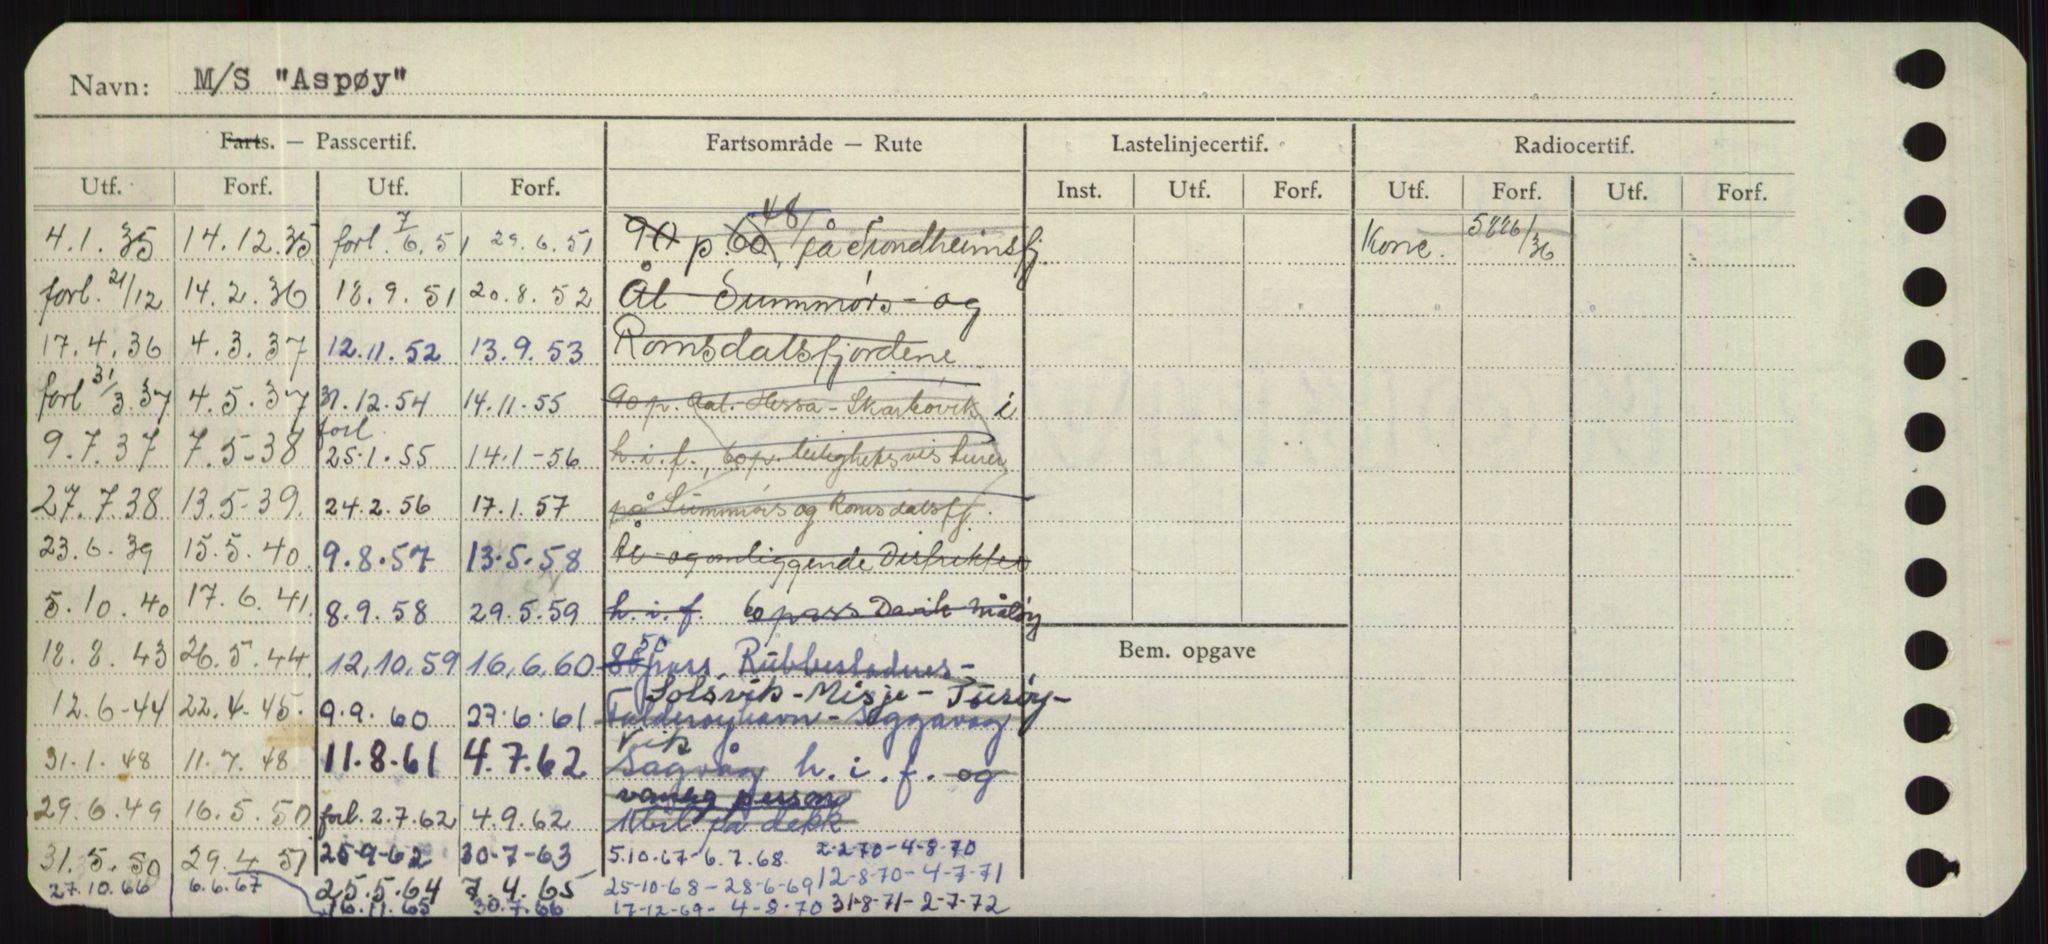 Navn: M/S "Aspøy"
Farts. — Passcertif. Fartsområde — Rute Lastelinjecertif. Radiocertif.
Utf. Forf. Utf. Forf. Inst. Utf. Forf. Utf. Forf. Utf. Forf.
48
4.1.35 14.12.35 forl. 7/6.51 29.6.51 90 p. 60 på Trondheimsfj. Konc. 5886/36
forl. 21/12 14.2.36 18.9.51 20.8.52 Ål - Sunnmørs- og
17.4.36 4.3.37 12.11.52 13.9.53 Romsdalsfjordene
forl 31/3.37 4.5.37 31.12.54 14.11.55 90 p. Aal. Hessa - Skarbøvik i
forl
9.7.37 7.5-38 25.1.55 14.1-56 h.i.f., 60 p. leilighetsvis turer
27.7.38 13.5-39. 24.2.56 17.1.57 på Sunnmørs og Romsdalsfj.
23.6.39 15.5.40 9.8.57 13.5.58 Ål - og omliggende Distrikter
5.10.40 17.6.41. 8.9.58 29.5.59 h.i.f. 60 pass Davik Måløy
50
18.8.43 26.5.44 12.10.59 16.6.60 pass. Rubbestadnes - Bem. opgave
Solsvik - Misje - Turøy -
12.6-44 22.4.45. 9.9.60 27.6.61
vik
31.1.48 11.7.48 11.8.61 4.7.62 Sagvåg h.i.f. og
vanleg person
29.6.49 16.5.50 forl. 2.7.62 4.9.62 bil på dekk
31.5.50 29.4.51 25-9-62 30-7-63 5.10-67-6.7.68. 2-2-70-4-8-70
27.10.66 6.6.67 25.5.64 7.4.65 25-10-68-28-6-69 12-8-70-4-7-71
16.11.65 30.7.66 17-12-69-4-8-70 31-8-71-2-7-72